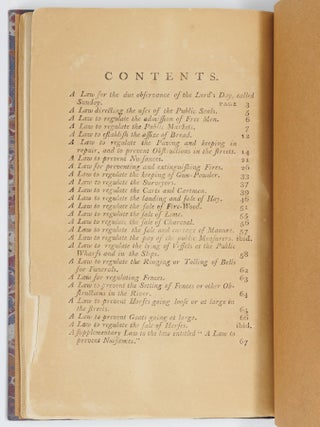 CONTENTS.
A Law for the due observance of the Lord's Day, called
Sunday. PAGE 3
A Law directing the uses of the Public Seals. 5
A Law to regulate the admission of Free Men. 6
A Law to regulate the Public Markets. 7
A Law to establish the assize of Bread. 12
A Law to regulate the Paving and keeping in
repair, and to prevent Obstructions in the streets. 14
A Law to prevent Nusances. 21
A Law for preventing and extinguishing Fires. 26
A Law to regulate the keeping of Gun-Powder. 33
A Law to regulate the Surveyors. 37
A Law to regulate the Carts and Cartmen. 39
A Law to regulate the landing and sale of Hay. 46
A Law to regulate the sale of Fire-Wood. 51
A Law to regulate the sale of Lime. 55
A Law to regulate the sale of Charcoal. 56
A Law to regulate the sale and cartage of Manure. 57
A Law to regulate the pay of the public Measurers. ibid.
A Law to regulate the lying of Vessels at the Public
Wharfs and in the Slips. 58
A Law to regulate the Ringing or Tolling of Bells
for Funerals. 62
A Law for regulating Fences. 63
A Law to prevent the Setting of Fences or other Ob-
structions in the River. 64
A Law to prevent Horses going loose or at large in
the streets. 64
A Law to prevent Goats going at large. 66
A Law to regulate the sale of Horses. ibid.
A supplementary Law to the law entitled "A Law to
prevent Nusances." 67